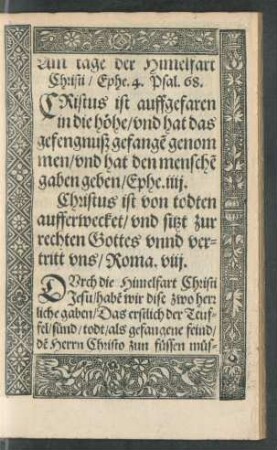 Am tage der Himelfart
Christi / Ephe. 4. Psal. 68.
CRistus ist auffgefaren
in die höhe / vnd hat das
gefengnuß gefangē genom
men / vnd hat den menschē
gaben geben / Ephe. iiij.
Christus ist von todten
aufferwecket / vnd sitzt zur
rechten Gottes vnnd ver-
tritt vns / Roma. viij.
DVrch die Himelfart Christi
Jesu / habē wir dise zwo herr
liche gaben / Das erstlich der Teuf-
fel / sünd / todt / als gefangene feind /
dē Herrn Christo zun füssen müs-